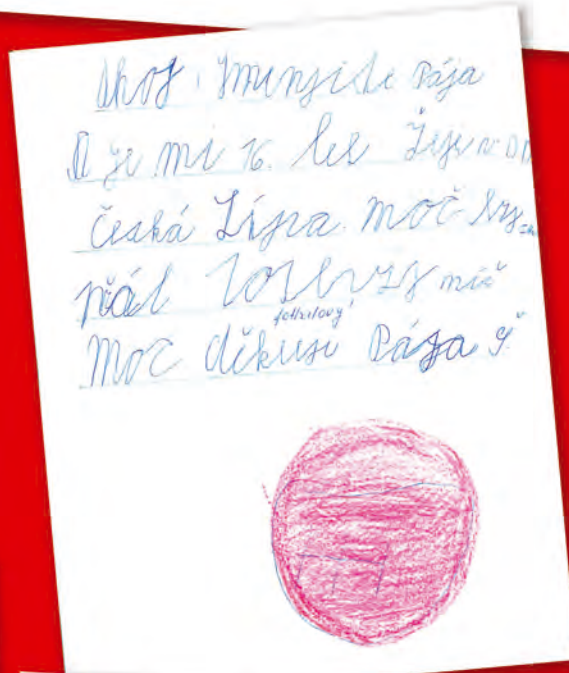 Ahoj. Jmenuji se Pája
a je mi 16. let Žiji v DD
Česká Lípa. Moč bys
přál
míč
fotbalový
Moc děkuji Pája Š